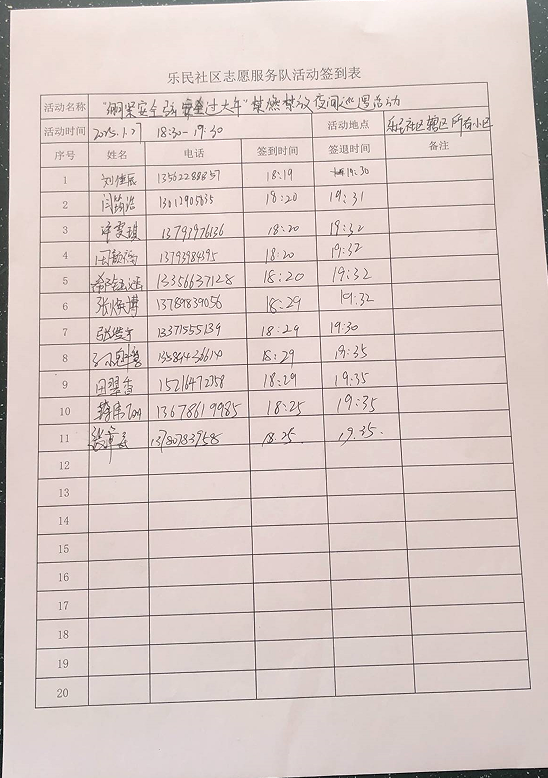 乐民社区志愿服务队活动签到表
活动名称 "绷紧安全弦 安全过大年"禁燃禁放夜间巡逻活动
活动时间 2025.1.27 18:30-19:30 活动地点 乐民社区辖区所有小区
序号 姓名 电话 签到时间 签退时间 备注
1 刘佳辰 13562288857 18:19 19:30
2 18:20 19:31
3 13791976136 18:20 19:32
4 13793984395 18:20 19:32
5 13356637128 18:20 19:32
6 13789839056 18:29 19:32
7 13371555139 18:29 19:30
8 18:29 19:35
9 田翠香 15216472758 18:29 19:35
10 13678619985 18:25 19:35
11 13780783958 18:25. 19:35.
12
13
14
15
16
17
18
19
20